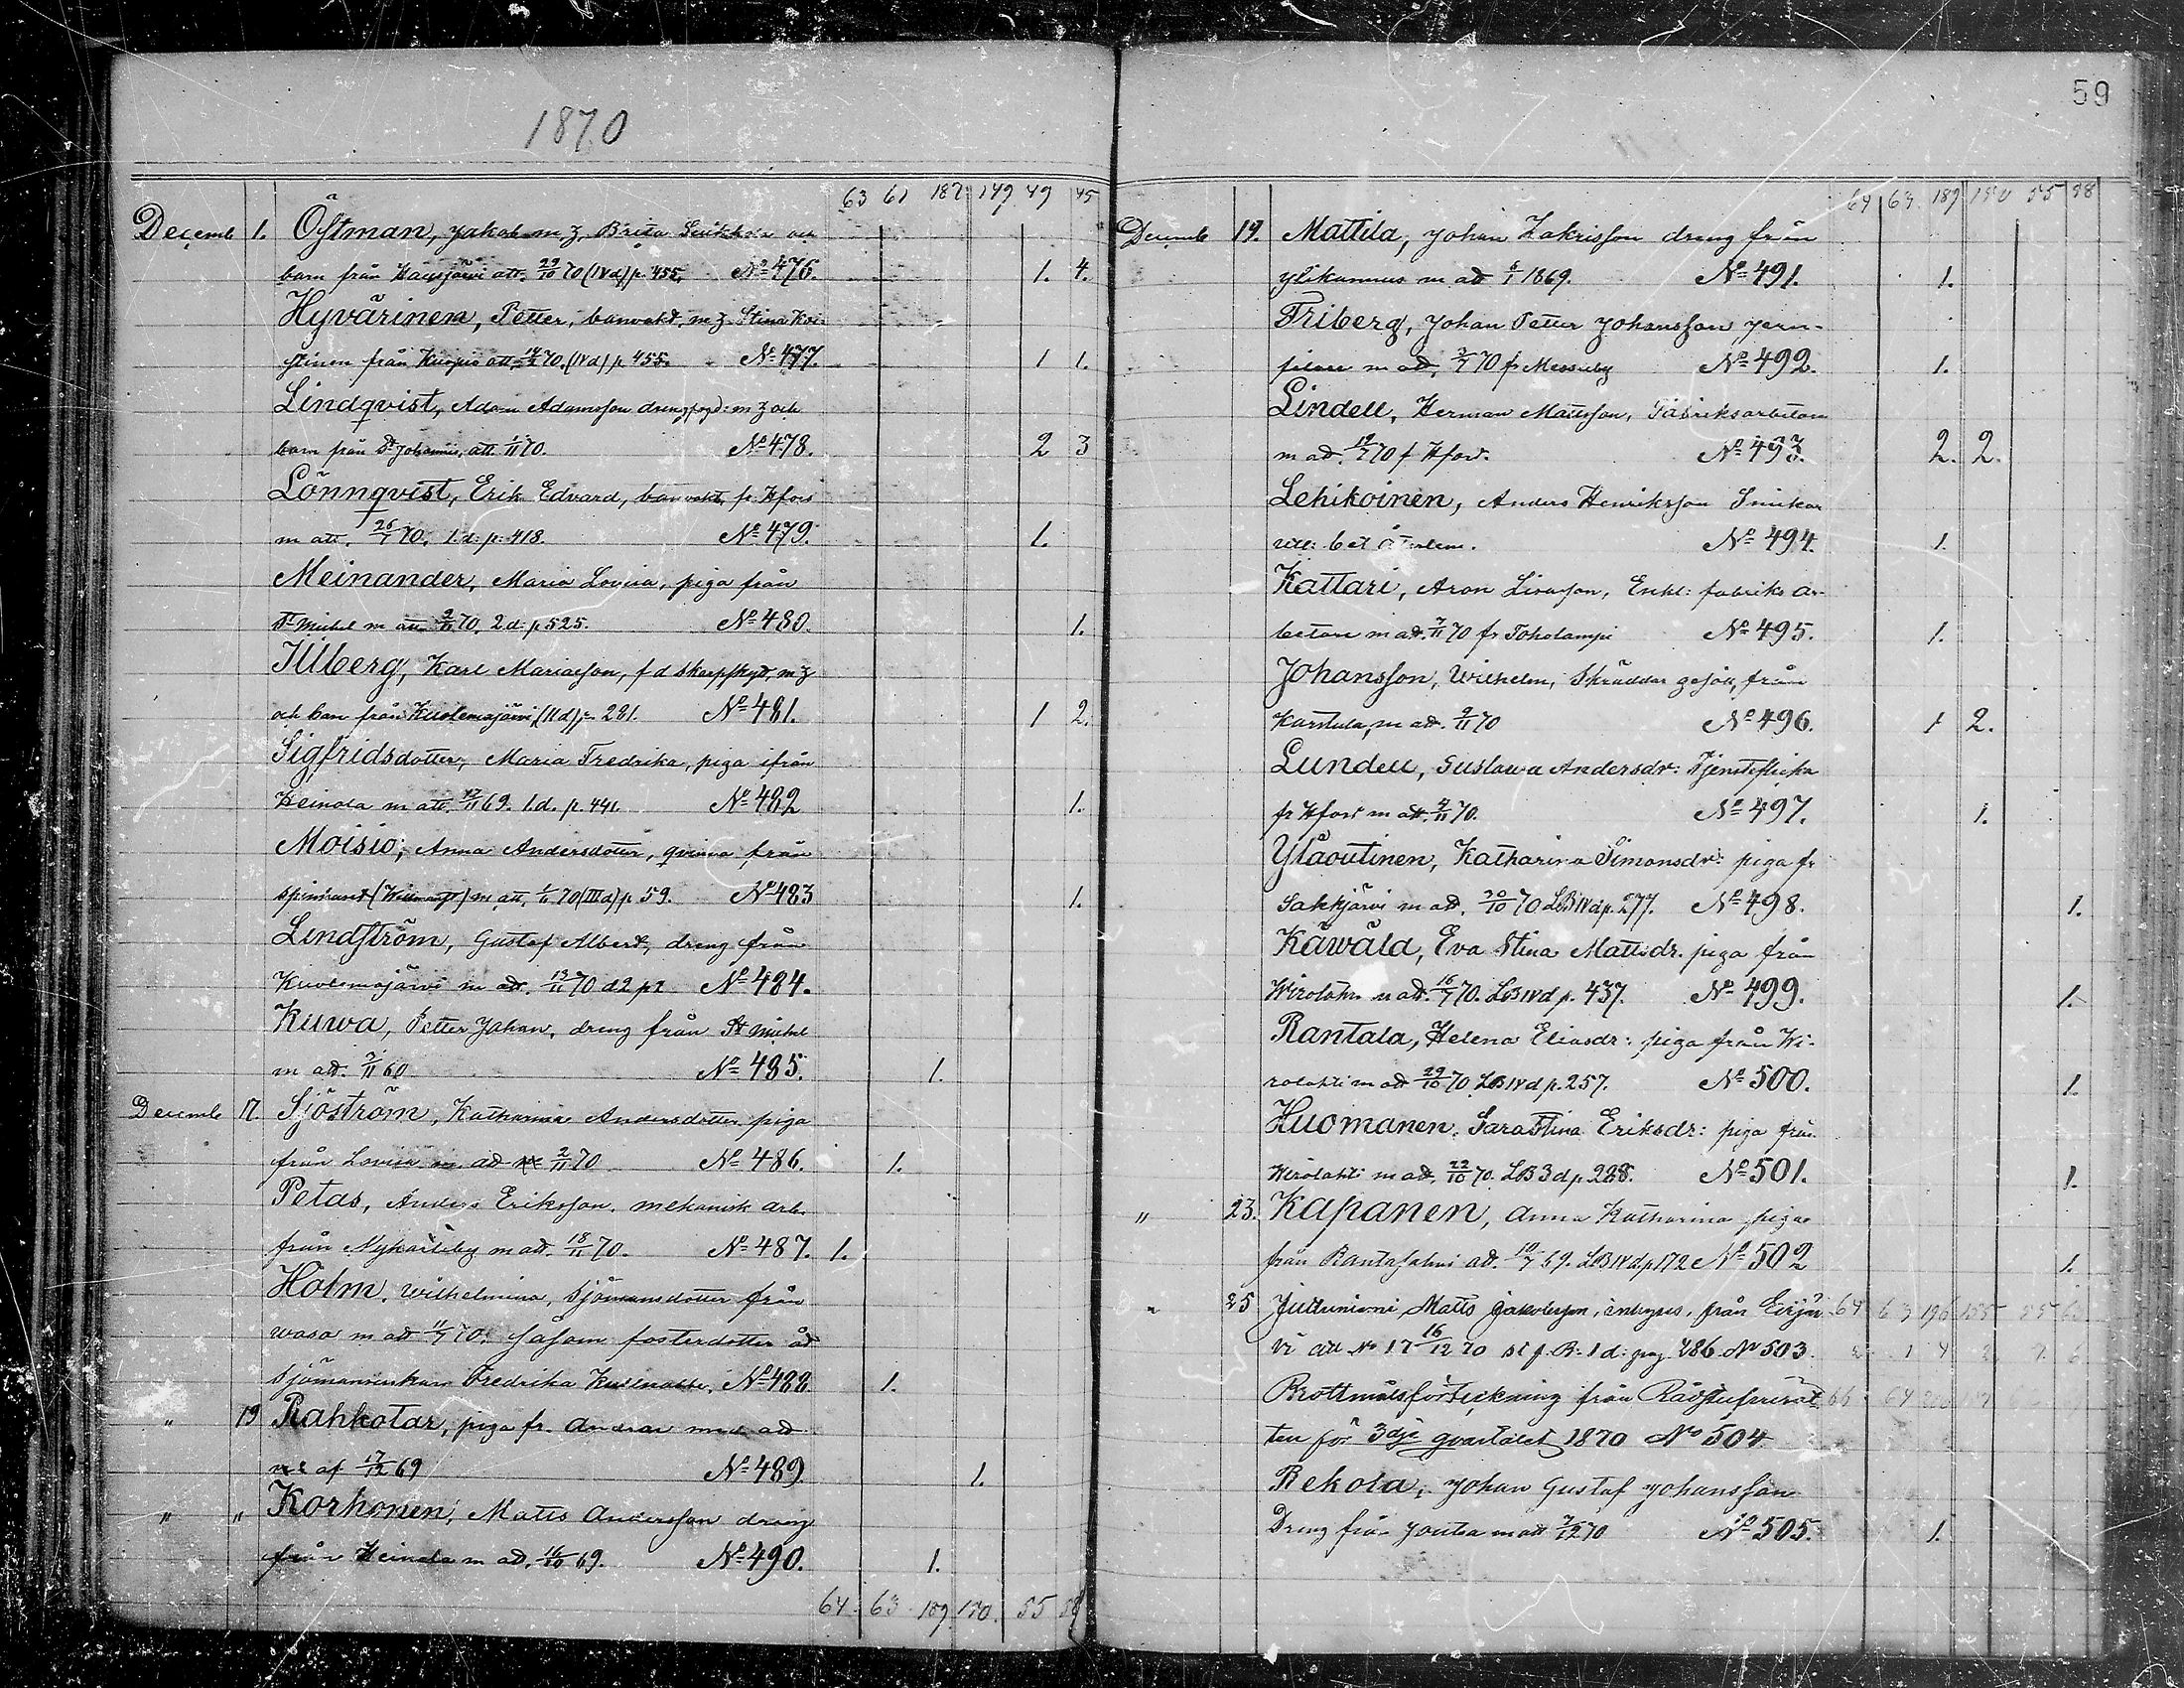 59
1870
63 61 187 149 49 45
Decemb 1. Östman, Jakob m. z. Brita och
barn från Hausjärvi att. 29/10 70 (IVd) p. 455. No 476. 1. 4.
Hyvärinen, Petter, banvakt, m z Stina Koi-
stinen från Kuopio att. 70. (IVd) p. 455. No 477. 1 1.
Lindqvist, Adam Adamsson drengfogd: m z och
barn från St Johannis, att. 1/11 70. No 478. 2 3
Lönnqvist, Erik Edvard, banvakt, fr. Hfors
m att. 26/7 70. 1.d: p: 418. No 479. 1.
Meinander, Maria Lovisa, piga från
St Michel m att 2/11 70. 2 d: p 525. No 480. 1.
Illberg, Karl Mariasson, f d skarpskyt, m z
och barn från Kuolemajärvi, (IId) p. 281. No 481. 1 2.
Sigfridsdotter, Maria Fredrika, piga ifrån
Heinola m att. 69. 1.d. p. 441. No 482 1.
Moisio, Anna Andersdotter, qvinna från
spinnhuset (Willmanst) m att, 70 (IIId) p. 59. No 483 1.
Lindström, Gustaf Albert, dreng från
Kuolemajärvi m att. 13/11 70 d 2 p 2 No 484.
Kuwa, Petter Johan, dreng från St Michel
m att. 60 No 485. 1.
Decemb 17. Sjöström, Katharina Andersdotter piga
från Lovisa m att 2/11 70 No 486. 1.
Petas, Anders Eriksson, mekanisk arb.
från Nykarleby m att. 18/11 70. No 487. 1.
Holm, Wilhelmina, Sjömansdotter från
Wasa m att 11/7 70. såsom fosterdotter åt
Sjömansenkan Fredrika No 488. 1.
" 19 Rahkotar, piga fr. med att
af 69 No 489. 1.
" " Korhonen, Matts Andersson dreng
från Heinola m att. 16/10 69. No 490. 1.
64 63 189 150. 55 58
64 63 189 150 55 58
Decemb 19. Mattila, Johan Zakrisson dreng från
Ylikannus m att 1869. No 491. 1.
Friberg, Johan Petter Johansson jern-
filare m att, 70 fr Messuby No 492. 1.
Lindell, Herman Mattsson, Fabriksarbetare
m att. 19/7 70 f Hfors. No 493. 2. 2.
Lehikoinen, Anders Henriksson Snickar
utt: bet återlem. No 494. 1.
Kattari, Aron Livasson, Enkl: fabriks ar-
betare m att. 7/11 70 fr Toholampi No 495. 1.
Johansson, Wilhelm, Skräddar gesäll, från
Karstula, m att. 9/11 70 No 496. 1 2.
Lundell, Gustawa Andersdr: Tjensteflicka
fr Hfors m att. 4/11 70. No 497. 1.
Yläoutinen, Katharina Simonsdr: piga fr
Säkkjärvi m att. 70 LB IVd p. 277. No 498. 1.
Käwälä, Eva Stina Mattsdr. piga från
Wirolahti m att. 16/7 70. LB IVd p. 437. No 499. 1.
Rantala, Helena Eliasdr: piga från Wi-
rolahti m att 29/10 70 LB IVd p. 257. No 500. 1.
Huomanen, Sara Stina Eriksdr: piga från
Wirolahti m att. 22/10 70. LB 3 d p. 288. No 501. 1.
" 23. Kapanen, Anna Katharina piga
från Rantasalmi att. 10/7 69. LB IVd p 172 No 502 1.
" 25 Matts Jakobsson, inhyses, från Eurjär- 64 63 196 155
vi att No 17 16/12 70 st f. B: 1 d: pag 286. No 503.
Brottmålsförteckning från Rådstufvurät
ten för 3dje qvartalet 1870 No 504
Rekola, Johan Gustaf Johansson
Dreng från Joutsa m att 7/12 70 No 505. 1.